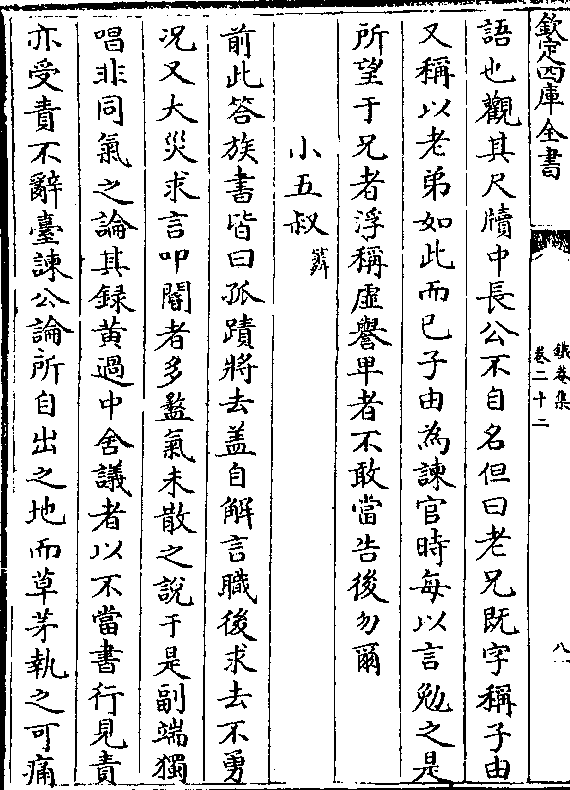 欽定四庫全書
鐵菴集
卷二十二
八
語也觀其尺牘中長公不自名但曰老兄既字稱子由
又稱以老弟如此而已子由為諫官時每以言勉之是
所望于兄者浮稱虛譽卑者不敢當告後勿爾
小五叔
前此答族書皆曰孤蹟將去盖自解言職後求去不勇
况又大災求言叩閽者多盭氣未散之說于是副端獨
唱非同氣之論其録黄過中舍議者以不當書行見責
亦受責不辭臺諫公論所自出之地而草茅執之可痛